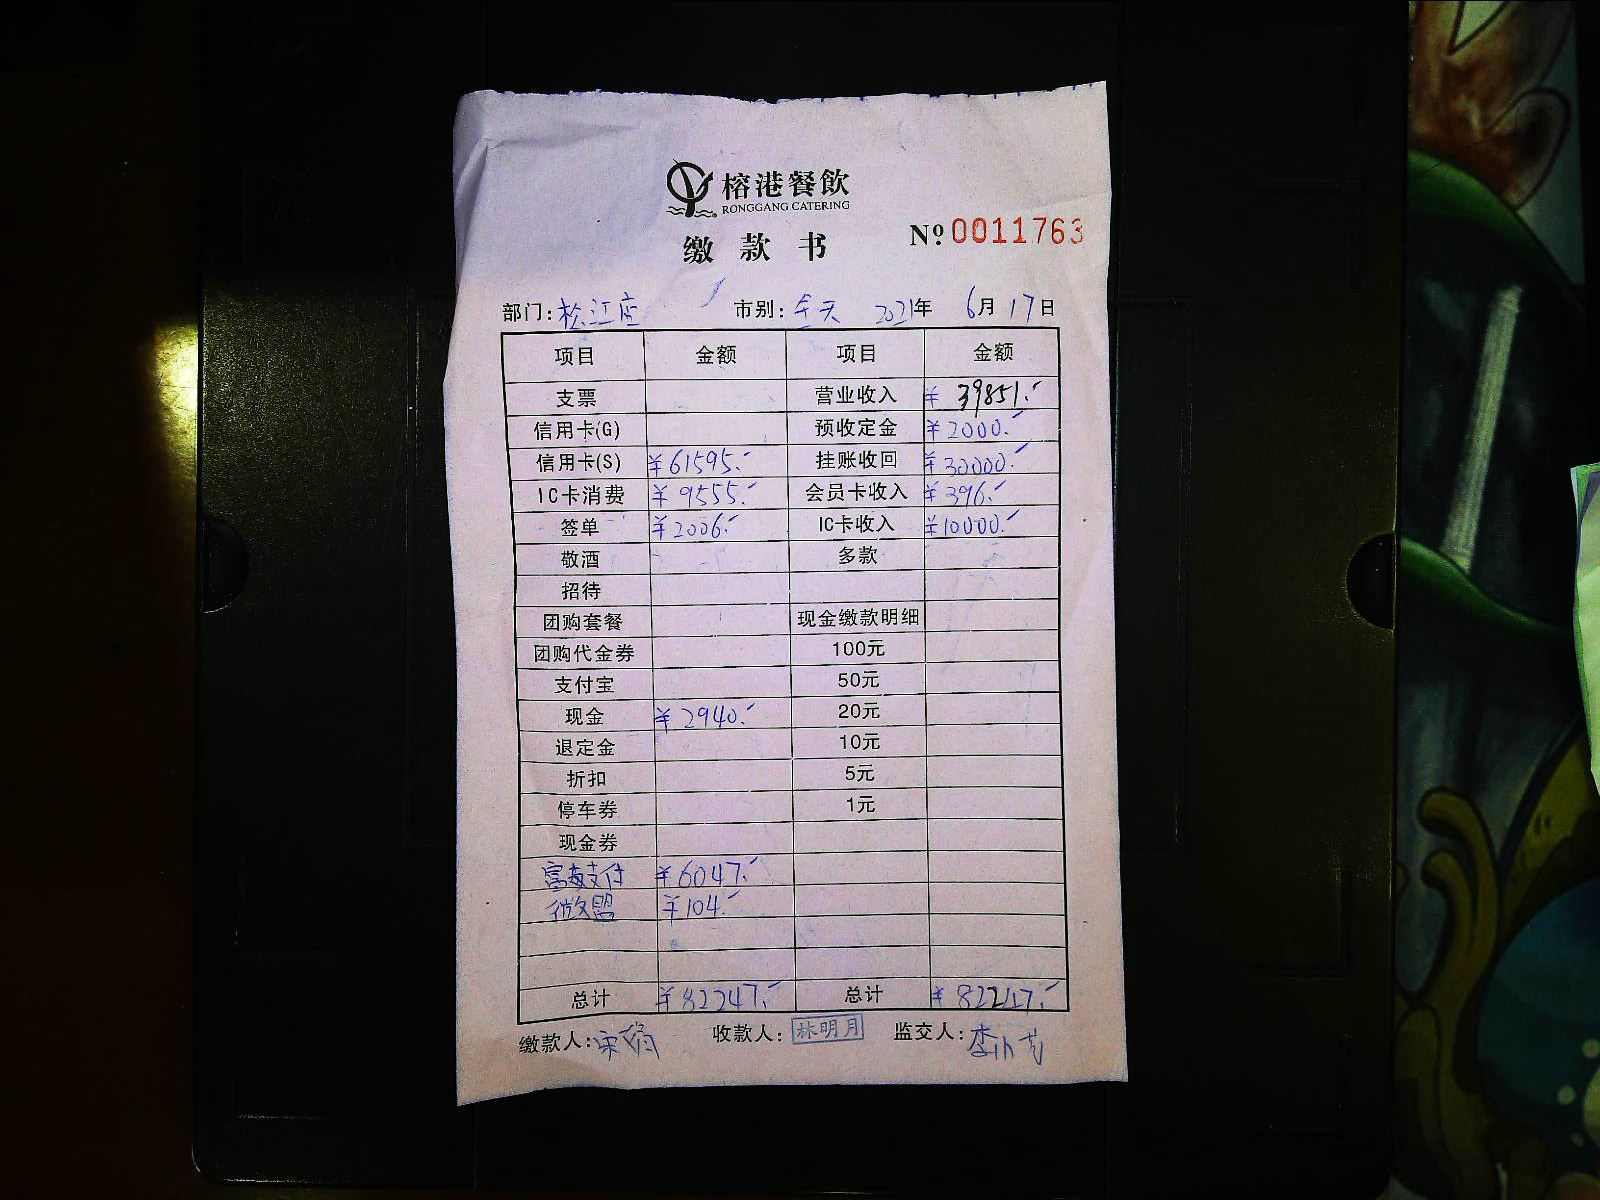 榕港餐飲
RONGGANG CATERING
缴款书 Nº 0011763
部门: 松江店 市别: 全天 2021年 6月 17日
项目 金额 项目 金额
支票 营业收入 ¥ 39851.-
信用卡(G) 预收定金 ¥2000.-
信用卡(S) ¥61595.- 挂账收回 ¥30000.-
IC卡消费 ¥9555.- 会员卡收入 ¥396.-
签单 ¥2006.- IC卡收入 ¥10000.-
敬酒 多款
招待
团购套餐 现金缴款明细
团购代金券 100元
支付宝 50元
现金 ¥2940.- 20元
退定金 10元
折扣 5元
停车券 1元
现金券
富友支付 ¥6047.-
微盟 ¥104.-
总计 ¥82247.- 总计 ¥82247.-
缴款人: 收款人: 林明月 监交人: